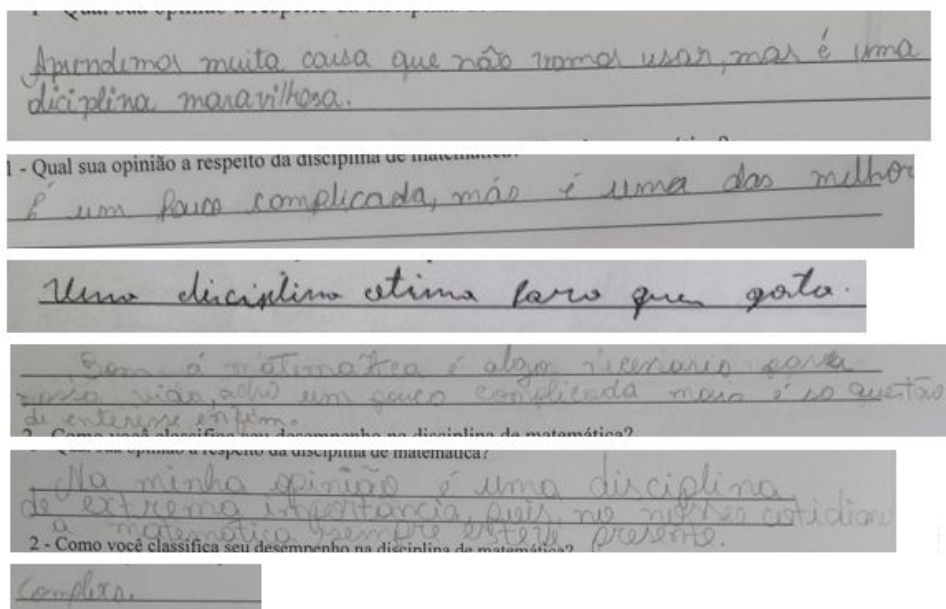 Aprendemos muita coisa que não vamos usar, mas é uma
diciplina maravilhosa.
1 - Qual sua opinião a respeito da disciplina de matemática?
É um pouco complicada, más é uma das melhor
Uma disciplina otima para quem gosta.
Bom á matimática é algo necesiario para
nossa vida, acho um pouco complicada mais é so questão
de enteresse enfim.
2 - Como você classifica seu desempenho na disciplina de matemática?
Qual sua opinião a respeito da disciplina de matemática?
Na minha opinião é uma disciplina
de extrema importancia, pois, no nosso cotidiano
a matemática sempre esteve presente.
2 - Como você classifica seu desempenho na disciplina de matemática?
Complexa.